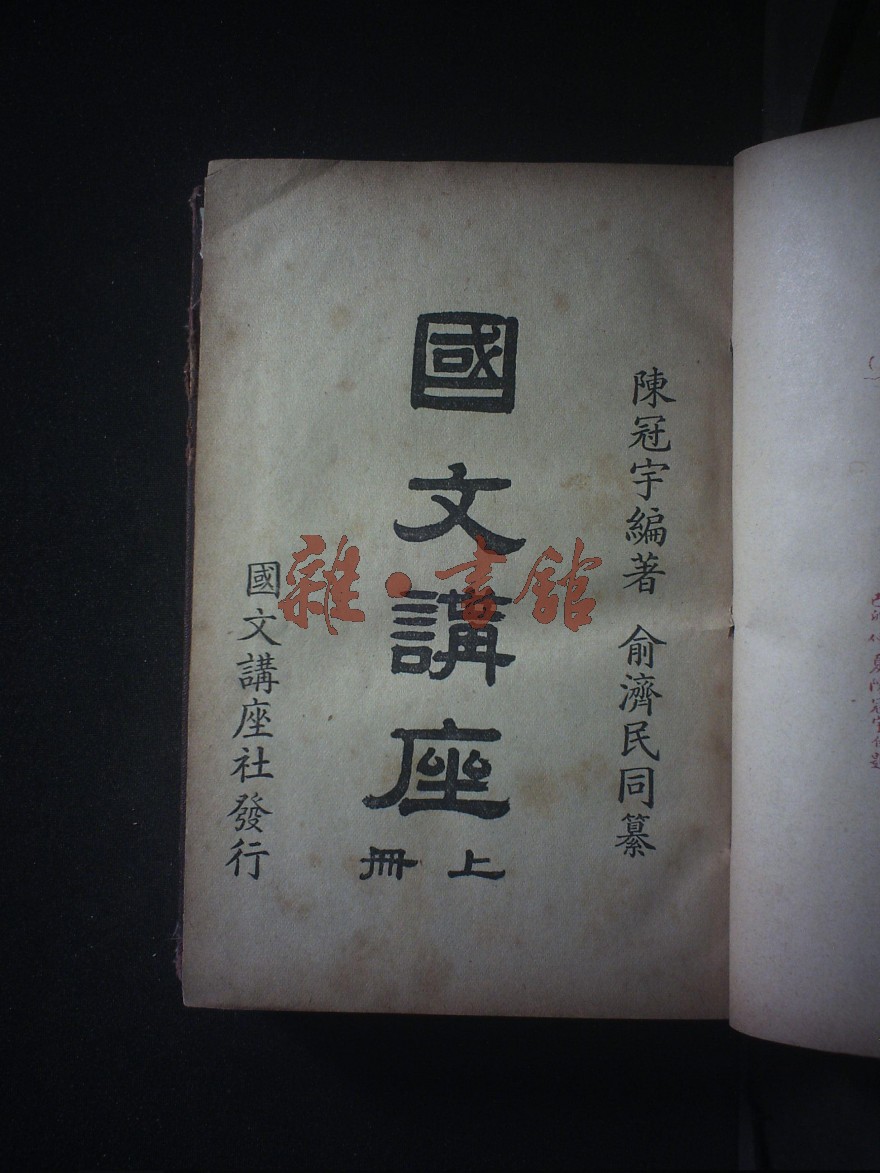 陳冠宇編著 俞濟民同纂
國文講座
上冊
國文講座社發行
雜·書館